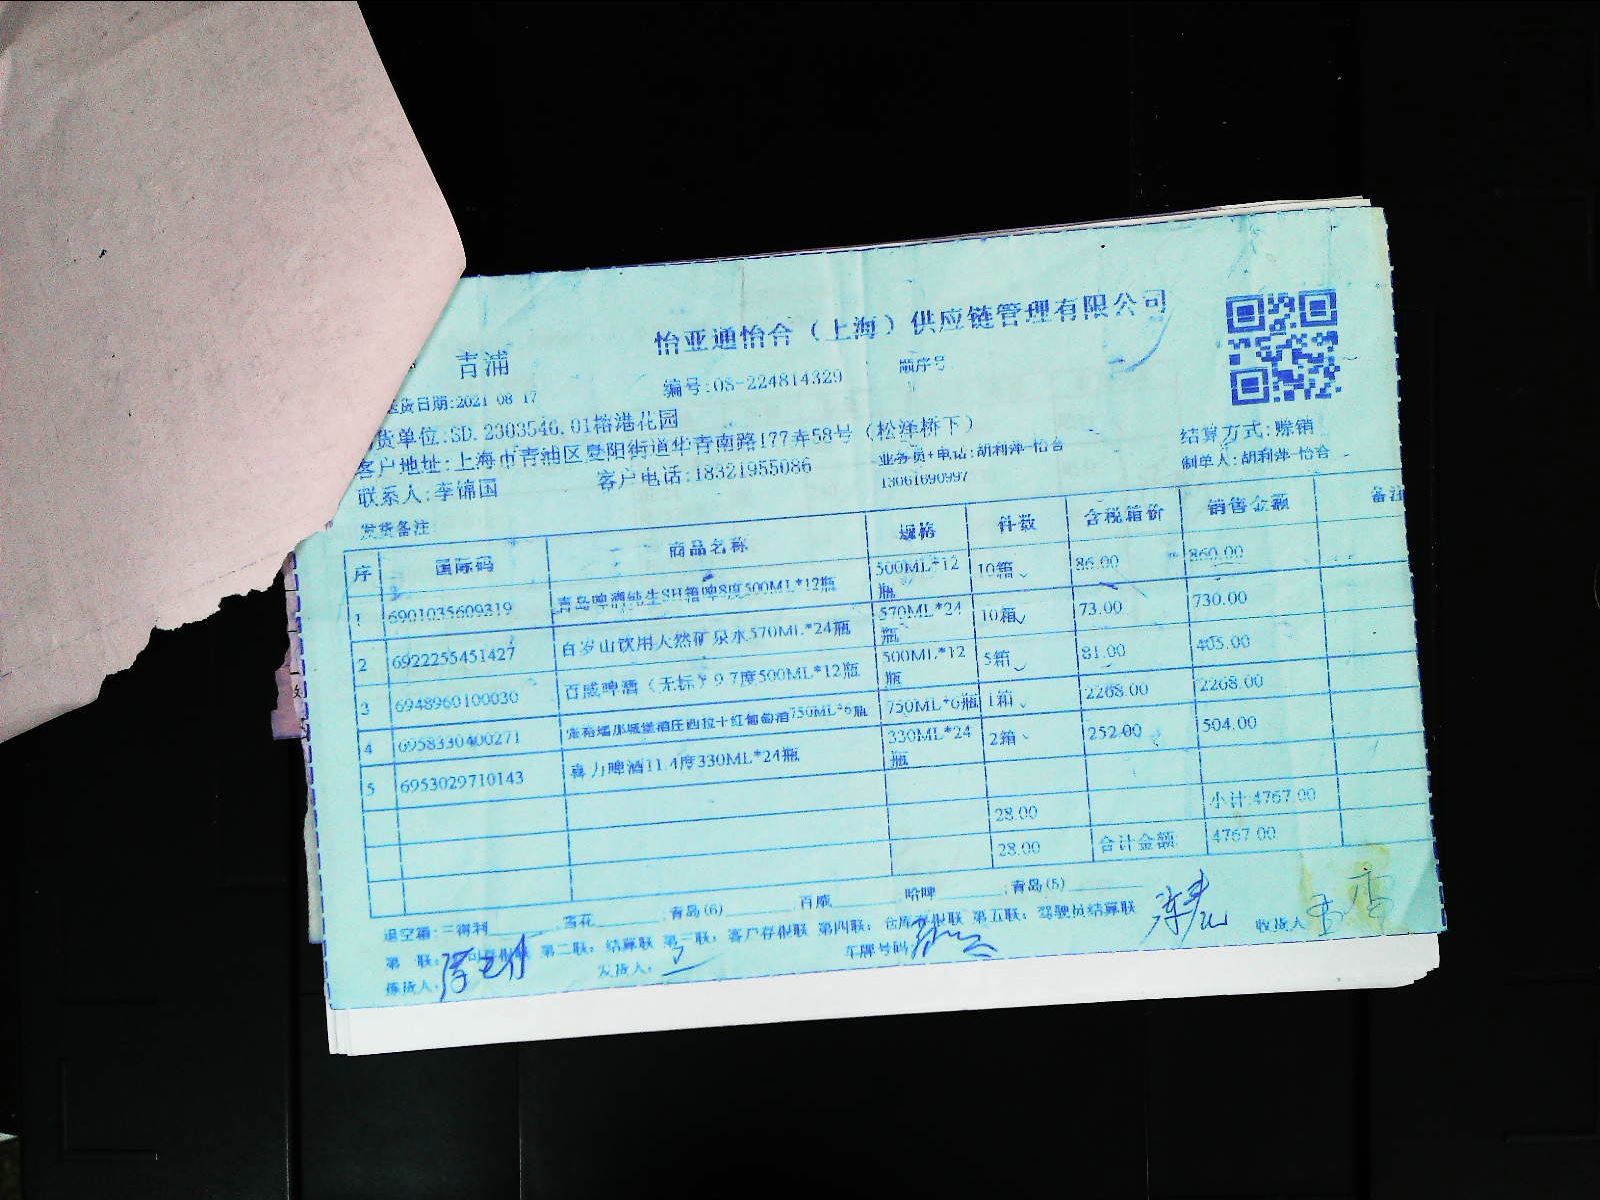 怡亚通怡合（上海）供应链管理有限公司
青浦
编号:OS-224814329
顺序号:
送货日期:2021-08-17
货单位:SD.2303546.01榕港花园
客户地址:上海市青浦区夏阳街道华青南路177弄58号（松泽桥下）
业务员+电话:胡利萍-怡合
13061690997
结算方式:赊销
制单人:胡利萍-怡合
联系人:李锦国
客户电话:18321955086
发货备注:
序 国际码 商品名称 规格 件数 含税箱价 销售金额 备注
1 6901035609319 青岛啤酒纯生SH箱啤8度500ML*12瓶 500ML*12瓶 10箱 86.00 860.00
2 6922255451427 百岁山饮用天然矿泉水570ML*24瓶 570ML*24瓶 10箱 73.00 730.00
3 6948960100030 百威啤酒（无标）9.7度500ML*12瓶 500ML*12瓶 5箱 81.00 405.00
4 6958330400271 张裕瑞那城堡酒庄西拉干红葡萄酒750ML*6瓶 750ML*6瓶 1箱 2268.00 2268.00
5 6953029710143 喜力啤酒11.4度330ML*24瓶 330ML*24瓶 2箱 252.00 504.00
28.00 小计:4767.00
28.00 合计金额: 4767.00
退空箱:三得利 雪花 青岛(6) 百威 哈啤 青岛(5)
第 联: 第二联: 结算联 第三联: 客户存根联 第四联: 仓库存根联 第五联: 驾驶员结算联
拣货人: 发货人: 车牌号码 收货人